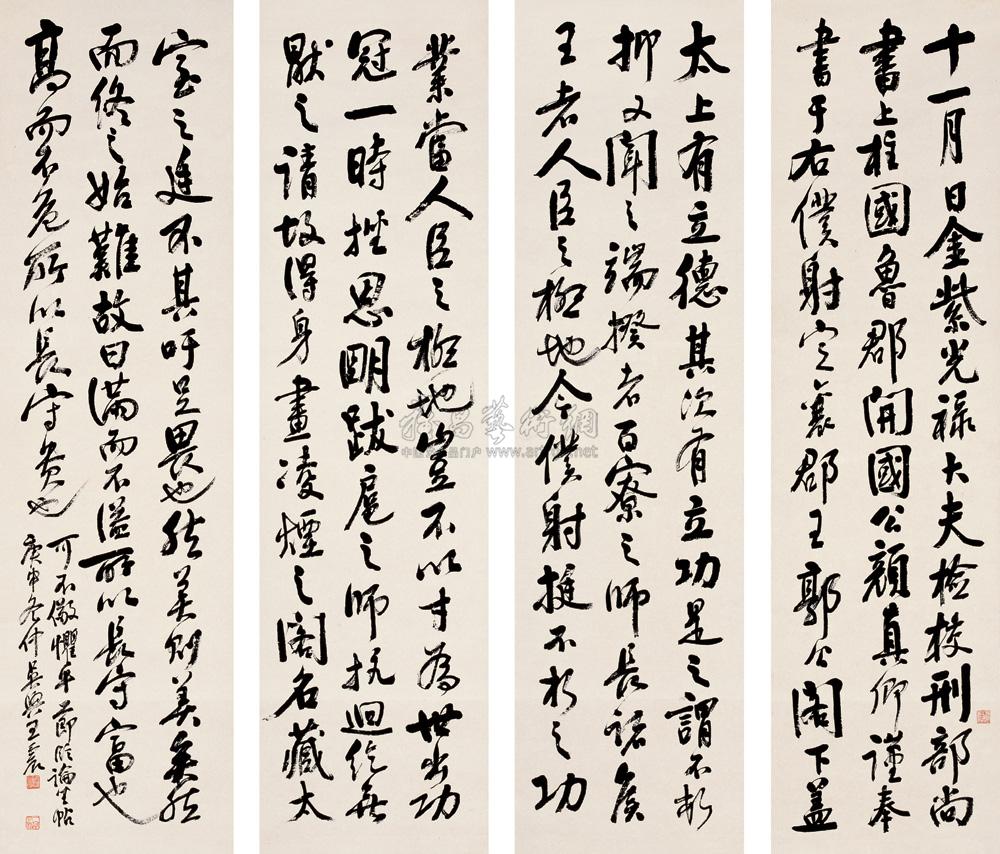 十一月日金紫光祿大夫檢校刑部尚
書上柱國魯郡開國公顏真卿謹奉
書于右僕射定襄郡王郭公閣下蓋
太上有立德其次有立功是之謂不朽
抑又聞之端揆者百寮之師長諸侯
王者人臣之極地今僕射挺不朽之功
業當人臣之極地豈不以才為世出功
冠一時挫思明跋扈之師抗迴紇無
猒之請故得身畫凌煙之閣名藏太
室之廷不其吁足畏也然美則美矣然
而終之始難故曰滿而不溢所以長守富也
高而不危所以長守貴也
可不儆懼乎節臨論坐帖
庚申冬仲吳興王震
雅昌藝術網